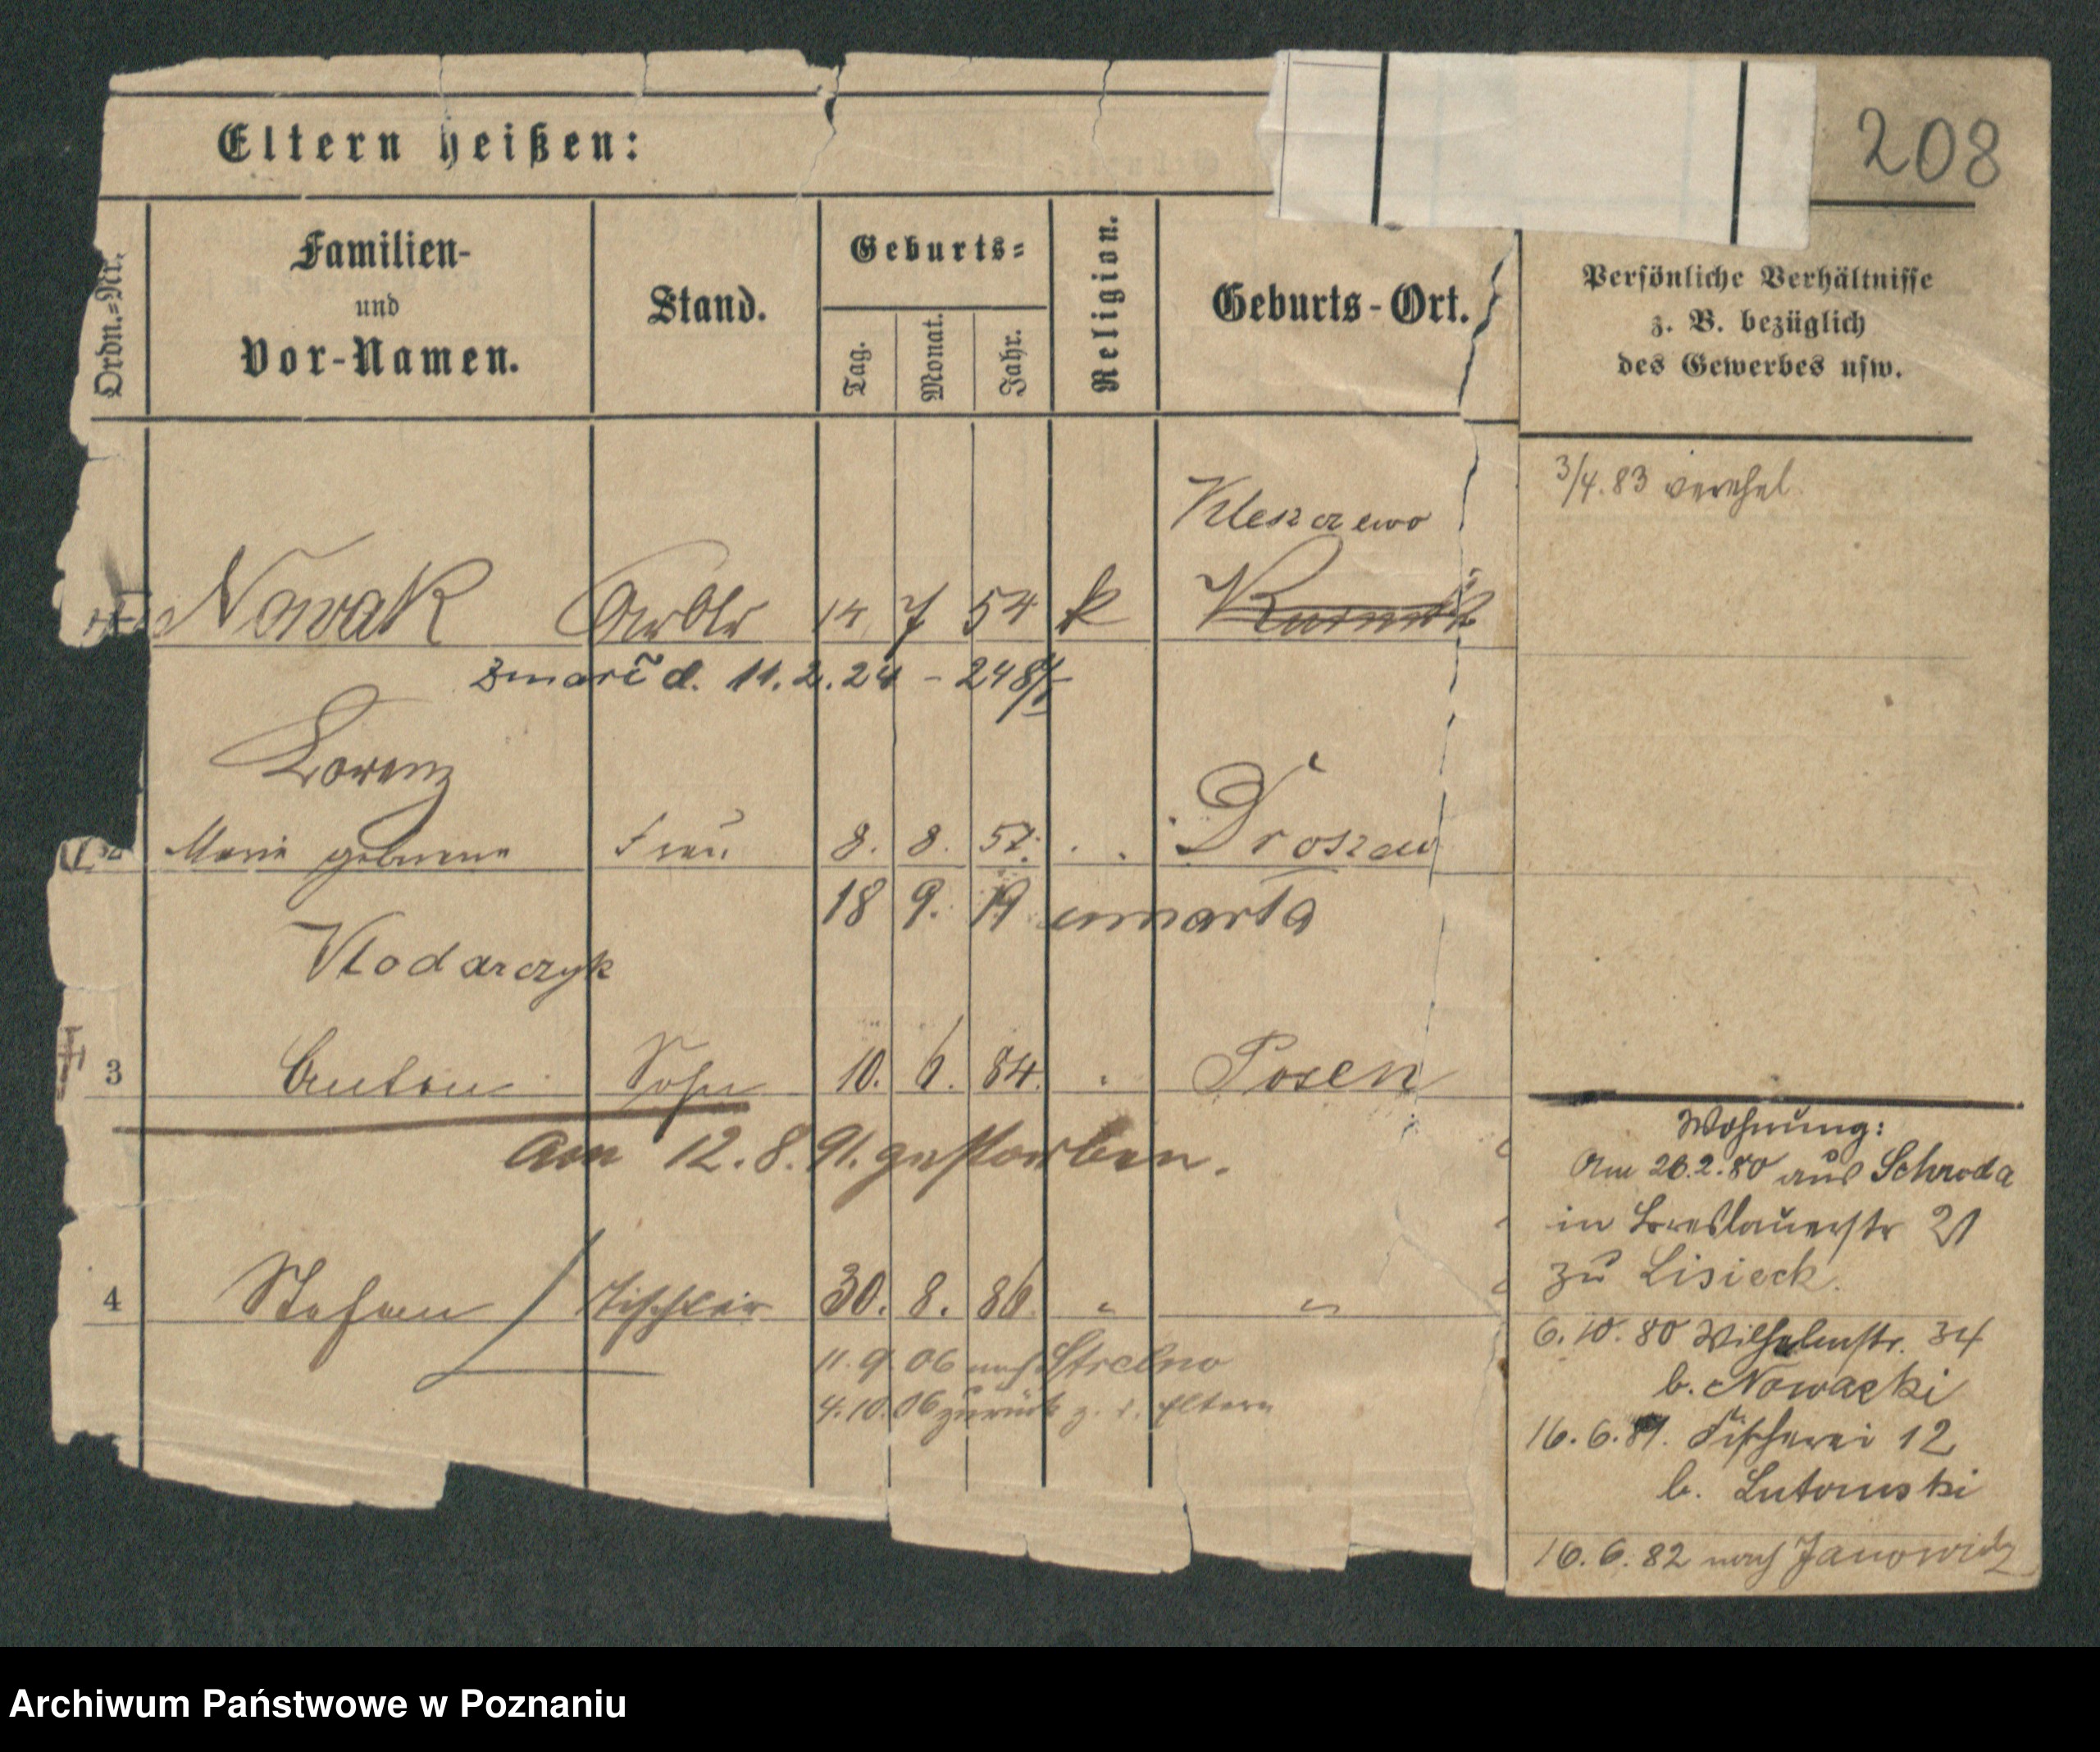 208
Eltern heißen:
Ordn.=Nr.
Familien-
und
Vor-Namen.
Stand.
Geburts=
Tag.
Monat.
Jahr.
Religion.
Geburts-Ort.
Persönliche Verhältnisse
z. B. bezüglich
des Gewerbes usw.
3/4.83 verehel.
Kleszczewo
Nowak Arbtr 14 7 54 k
zmarł d. 11.2.24 - 248/
Lorenz
Marie geborene Frau 8. 8. 57. Droszew
18 9. 19 umarła
Wlodarczyk
3 Anton Sohn 10. 6. 84. " Posen
Am 12.8.91. gestorben.
4 Stefan Tischler 30. 8. 86. " "
11.9.06 nach Strelno
4.10.06 zurück z. d. Eltern
Wohnung:
Am 26.2.80 aus Schroda
in Breslauerstr 21
zu Lisieck.
6.10.80 Wilhelmstr. 34
b. Nowacki
16.6.81. Fischerei 12
b. Lutomski
16.6.82 nach Janowitz
Archiwum Państwowe w Poznaniu